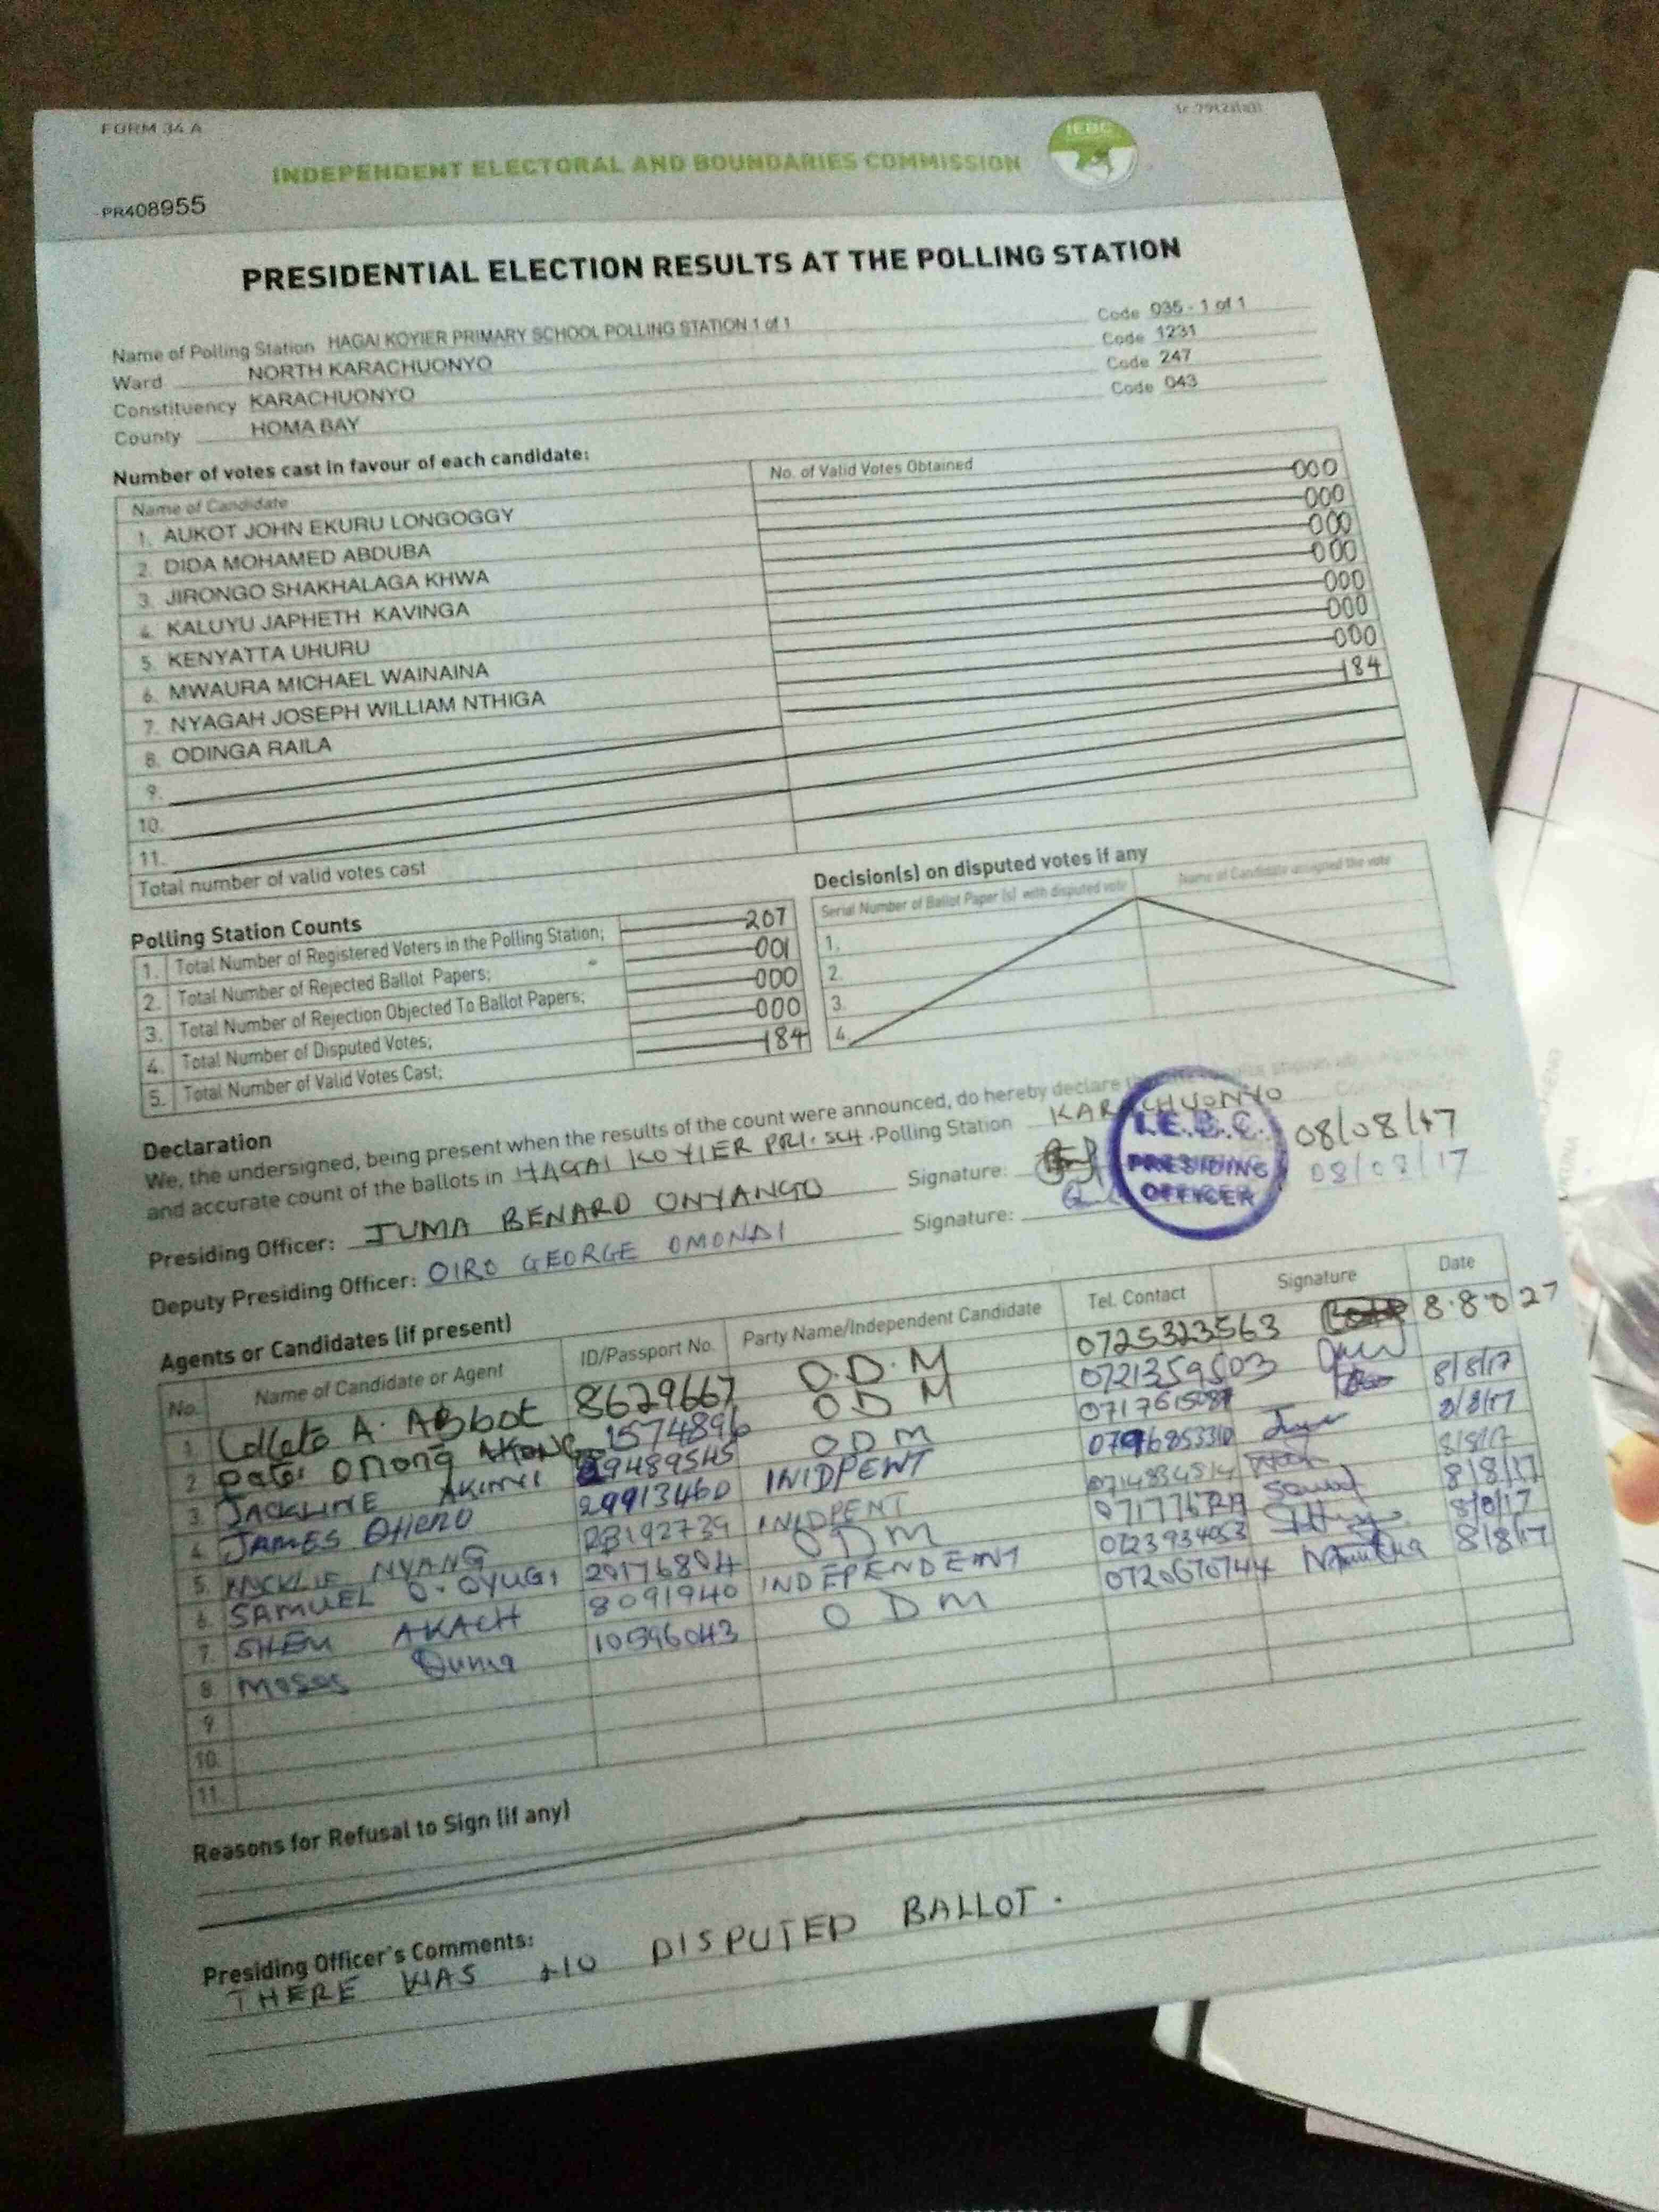 FORM 34 A
INDEPENDENT ELECTORAL AND BOUNDARIES COMMISSION
IEBC
PR408955
PRESIDENTIAL ELECTION RESULTS AT THE POLLING STATION
Name of Polling Station HAGAI KOYIER PRIMARY SCHOOL POLLING STATION 1 of 1 Code 035 - 1 of 1
Ward NORTH KARACHUONYO Code 1231
Constituency KARACHUONYO Code 247
County HOMA BAY Code 043
Number of votes cast in favour of each candidate:
Name of Candidate No. of Valid Votes Obtained
1. AUKOT JOHN EKURU LONGOGGY 000
2. DIDA MOHAMED ABDUBA 000
3. JIRONGO SHAKHALAGA KHWA 000
4. KALUYU JAPHETH KAVINGA 000
5. KENYATTA UHURU 000
6. MWAURA MICHAEL WAINAINA 000
7. NYAGAH JOSEPH WILLIAM NTHIGA 000
8. ODINGA RAILA 184
9.
10.
11.
Total number of valid votes cast
Polling Station Counts
1. Total Number of Registered Voters in the Polling Station; 207
2. Total Number of Rejected Ballot Papers; 001
3. Total Number of Rejection Objected To Ballot Papers; 000
4. Total Number of Disputed Votes; 000
5. Total Number of Valid Votes Cast; 184
Decision(s) on disputed votes if any
Serial Number of Ballot Paper (s) with disputed vote Name of Candidate assigned the vote
1.
2.
3.
4.
Declaration
We, the undersigned, being present when the results of the count were announced, do hereby declare
and accurate count of the ballots in HAGAI KOYIER PRI. SCH. Polling Station KARACHUONYO
Presiding Officer: JUMA BENARD ONYANGO Signature: 08/08/17
Deputy Presiding Officer: OIRO GEORGE OMONDI Signature: 08/08/17
I.E.B.C.
PRESIDING
OFFICER
Agents or Candidates (if present)
No. Name of Candidate or Agent ID/Passport No. Party Name/Independent Candidate Tel. Contact Signature Date
1. A. ABbot 8629667 O.D.M 0725323563
2. Onong 1574896 O D M 0721359503
3. JACKLINE AKINYI 29489545 O D M 8/8/17
4. JAMES OTIENO 29913460 INIDPENT 8/8/17
5. NYANG INIDPENT 8/8/17
6. SAMUEL O. OYUGI 20176804 O D M 8/8/17
7. SHEM AKACH 8091940 INDEPENDENT 0723934053 8/8/17
8. Moses Ouma 10596043 O D M 0720670744 8/8/17
9
10.
11.
Reasons for Refusal to Sign (if any)
Presiding Officer's Comments:
THERE WAS NO DISPUTED BALLOT.